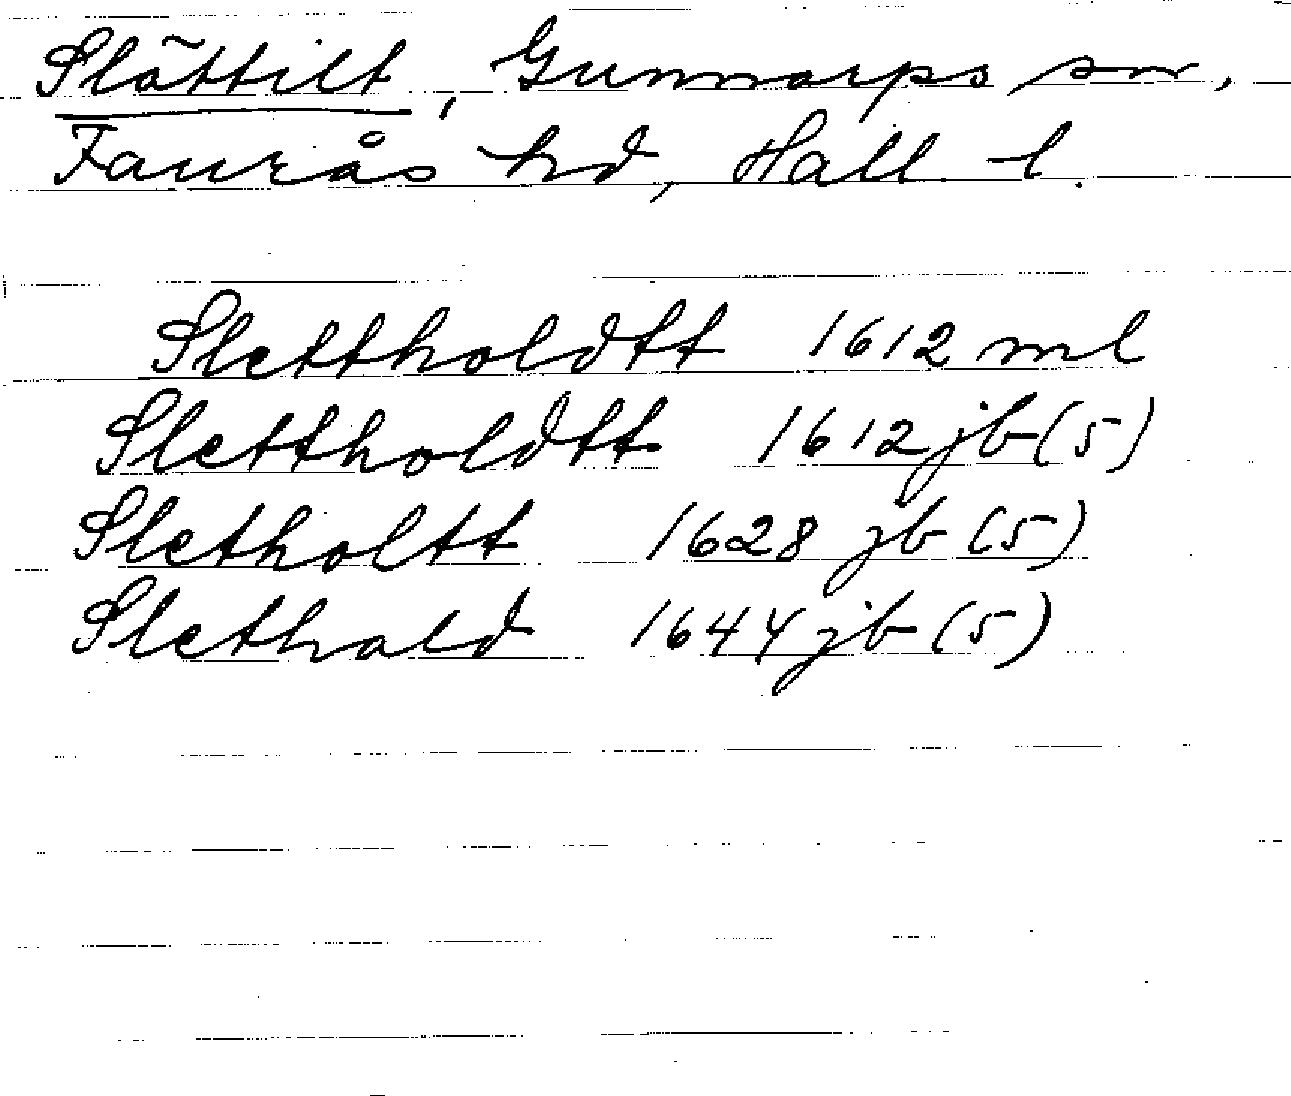 Slättilt, Gunnarps sn,
Faurås hd, Hall. l.
Slettholdtt 1612 ml
Slettholdtt 1612 jb (5)
Sletholtt 1628 jb (5)
Slethald 1644 jb (5)